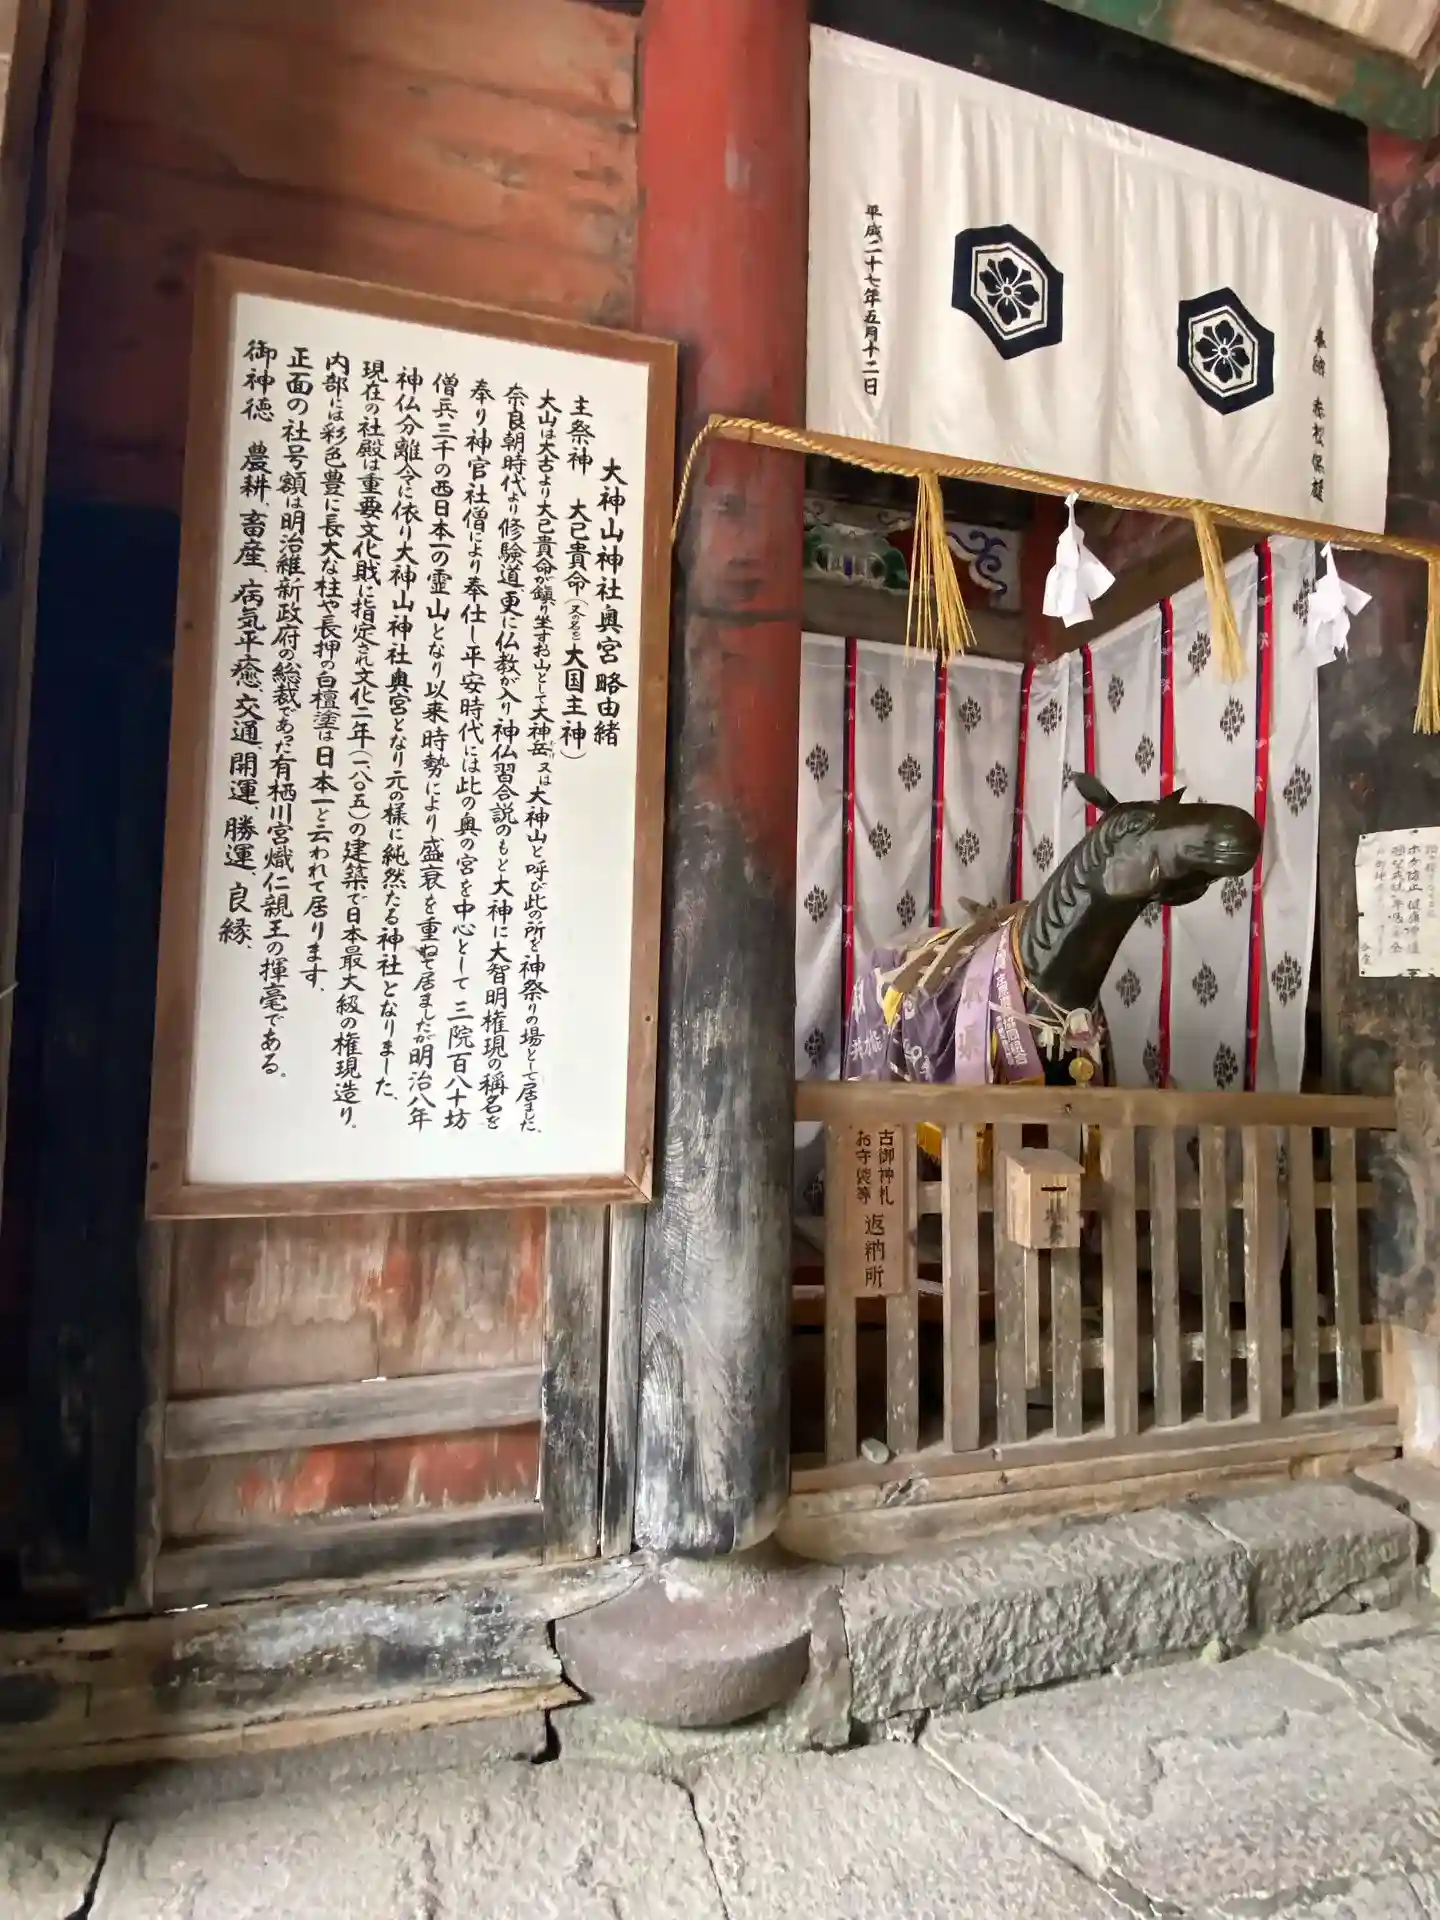 大神山神社奥宮略由緒
主祭神　大己貴命(又の名を大国主神)
大山は大古より大己貴命が鎮り坐すお山として大神岳又は大神山と呼び此の所を神祭りの場として居ました、
奈良朝時代より修験道、更に仏教が入り神仏習合説のもと大神に大智明権現の稱名を
奉り神官社僧により奉仕し平安時代には此の奥の宮を中心として三院百八十坊
僧兵三千の西日本一の霊山となり以来時勢により盛衰を重ねて居ましたが明治八年
神仏分離令に依り大神山神社奥宮となり元の様に純然たる神社となりました、
現在の社殿は重要文化財に指定され文化二年(一八〇五)の建築で日本最大級の権現造り。
内部には彩色豊に長大な柱や長押の白檀塗は日本一と云われて居ります。
正面の社号額は明治維新政府の総裁であった有栖川宮熾仁親王の揮毫である。
御神徳　農耕、畜産、病気平癒、交通、開運、勝運、良縁、
奉納　赤松保雄
平成二十七年五月十二日
古御神札
お守袋等
返納所